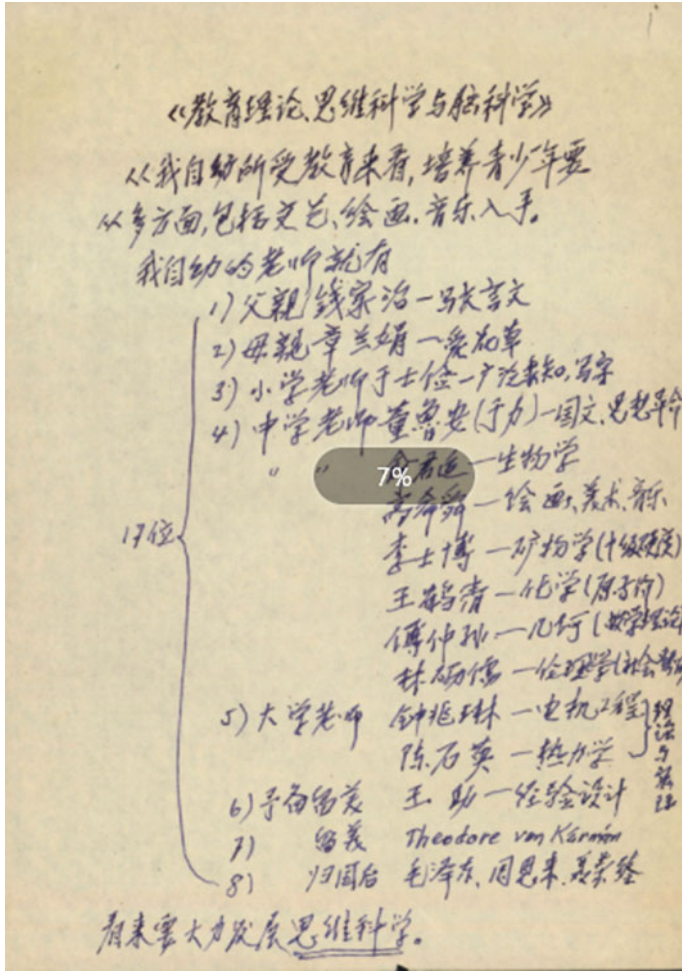 《教育理论、思维科学与脑科学》
从我自幼所受教育来看,培养青少年要
从多方面,包括文艺、绘画、音乐入手。
我自幼的老师就有
1)父親 钱家治—写文言文
2)母親 章兰娟—爱花草
3)小学老师于士俭—广泛求知,写字
4)中学老师 董鲁安(于力)—国文、思想革命
7%
" " 俞君适—生物学
高希舜—绘画、美术、音乐
17位
李士博—矿物学(十级硬度)
王鹤清—化学(原子价)
傅仲孙—几何(数学理论
林砺儒—伦理学(社会
5)大学老师 钟兆琳—电机工程
陈石英—热力学
理论与实践
6)予备留美 王助—经验设计
7) 留美 Theodore von Kármán
8) 归国后 毛泽东、周恩来、聂荣臻
看来要大力发展思维科学。